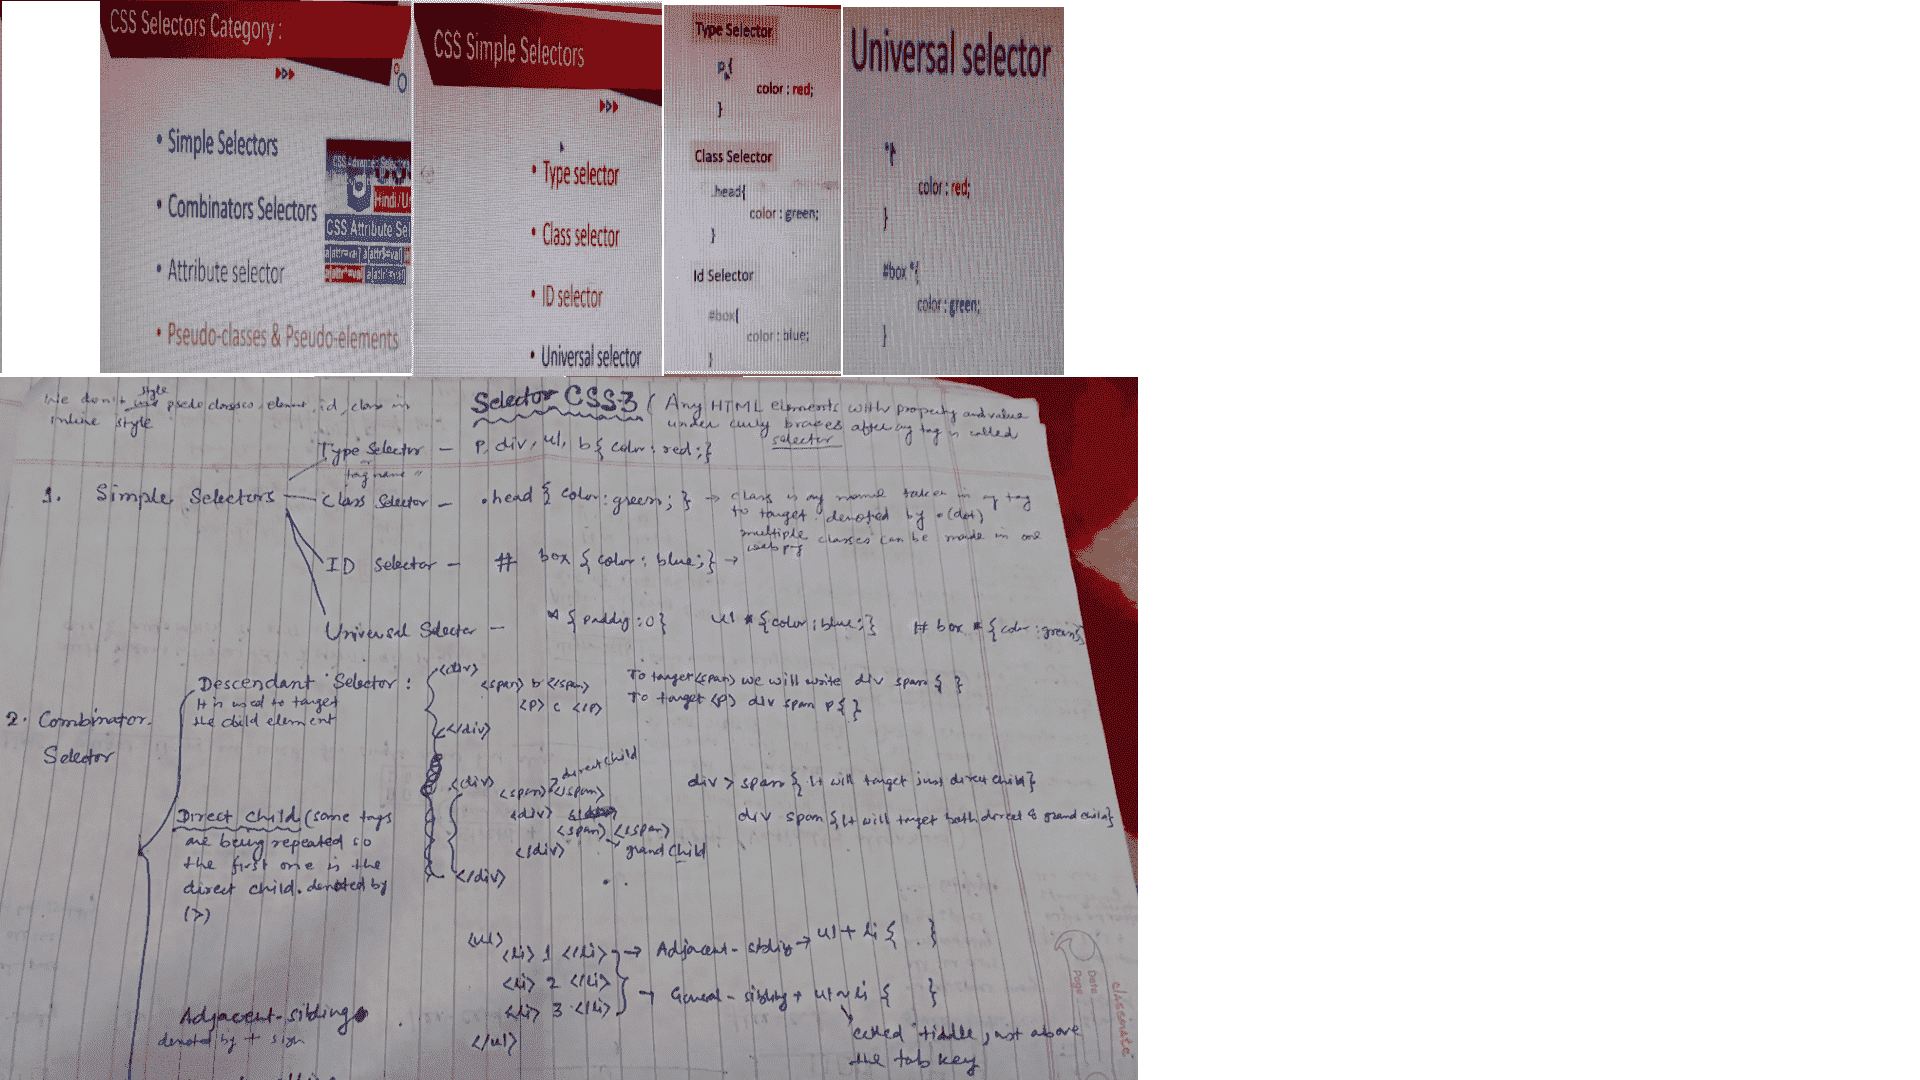 CSS Selectors Category :
• Simple Selectors
• Combinators Selectors
• Attribute selector
• Pseudo-classes & Pseudo-elements
CSS Advance Selectors
Hindi/U
CSS Attribute Sel
a[attr=val] a[attr$=val]
a[attr*=val] a[attr^=val]
CSS Simple Selectors
• Type selector
• Class selector
• ID selector
• Universal selector
Type Selector
p{
color : red;
}
Class Selector
.head{
color : green;
}
Id Selector
#box{
color : blue;
}
Universal selector
*{
color : red;
}
#box *{
color : green;
}
We don't style psedo classes, element, id, class in
inline style
Selector CSS3 (Any HTML elements with property and value
under curly braces after any tag is called
selector
1. Simple Selectors
Type Selector – P, div, ul, b { color: red;}
"tag name"
Class Selector – .head { color: green; } → class is any name taken in any tag
to target. denoted by .(dot)
multiple classes can be made in one
web pag
ID Selector – # box { color: blue;} →
Universal Selector – * { paddig: 0} ul * {color: blue;} # box * {color: green}
2. Combinator
Selector
Descendant Selector :
It is used to target
the child element
<div>
<span> b </span>
<P> c </P>
</div>
To target <span> we will write div span { }
To target <P> div span P { }
Direct Child (same tags
are being repeated so
the first one is the
direct child. denoted by
(>)
<div>
<span> </span> direct child
<div>
<span> </span>
</div> grand child
</div>
div > span { It will target just direct child}
div span { It will target both direct & grand child}
Adjacent-sibling
denoted by + sign
<ul>
<li> 1 </li> → Adjacent-sibling → ul + li { }
<li> 2 </li>
<li> 3 </li> → General-sibling → ul ~ li { }
</ul>
called "tiddle, just above
the tab key
classmate
Date
Page